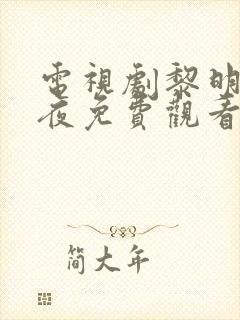 電視劇黎明
夜免費觀看
简大年